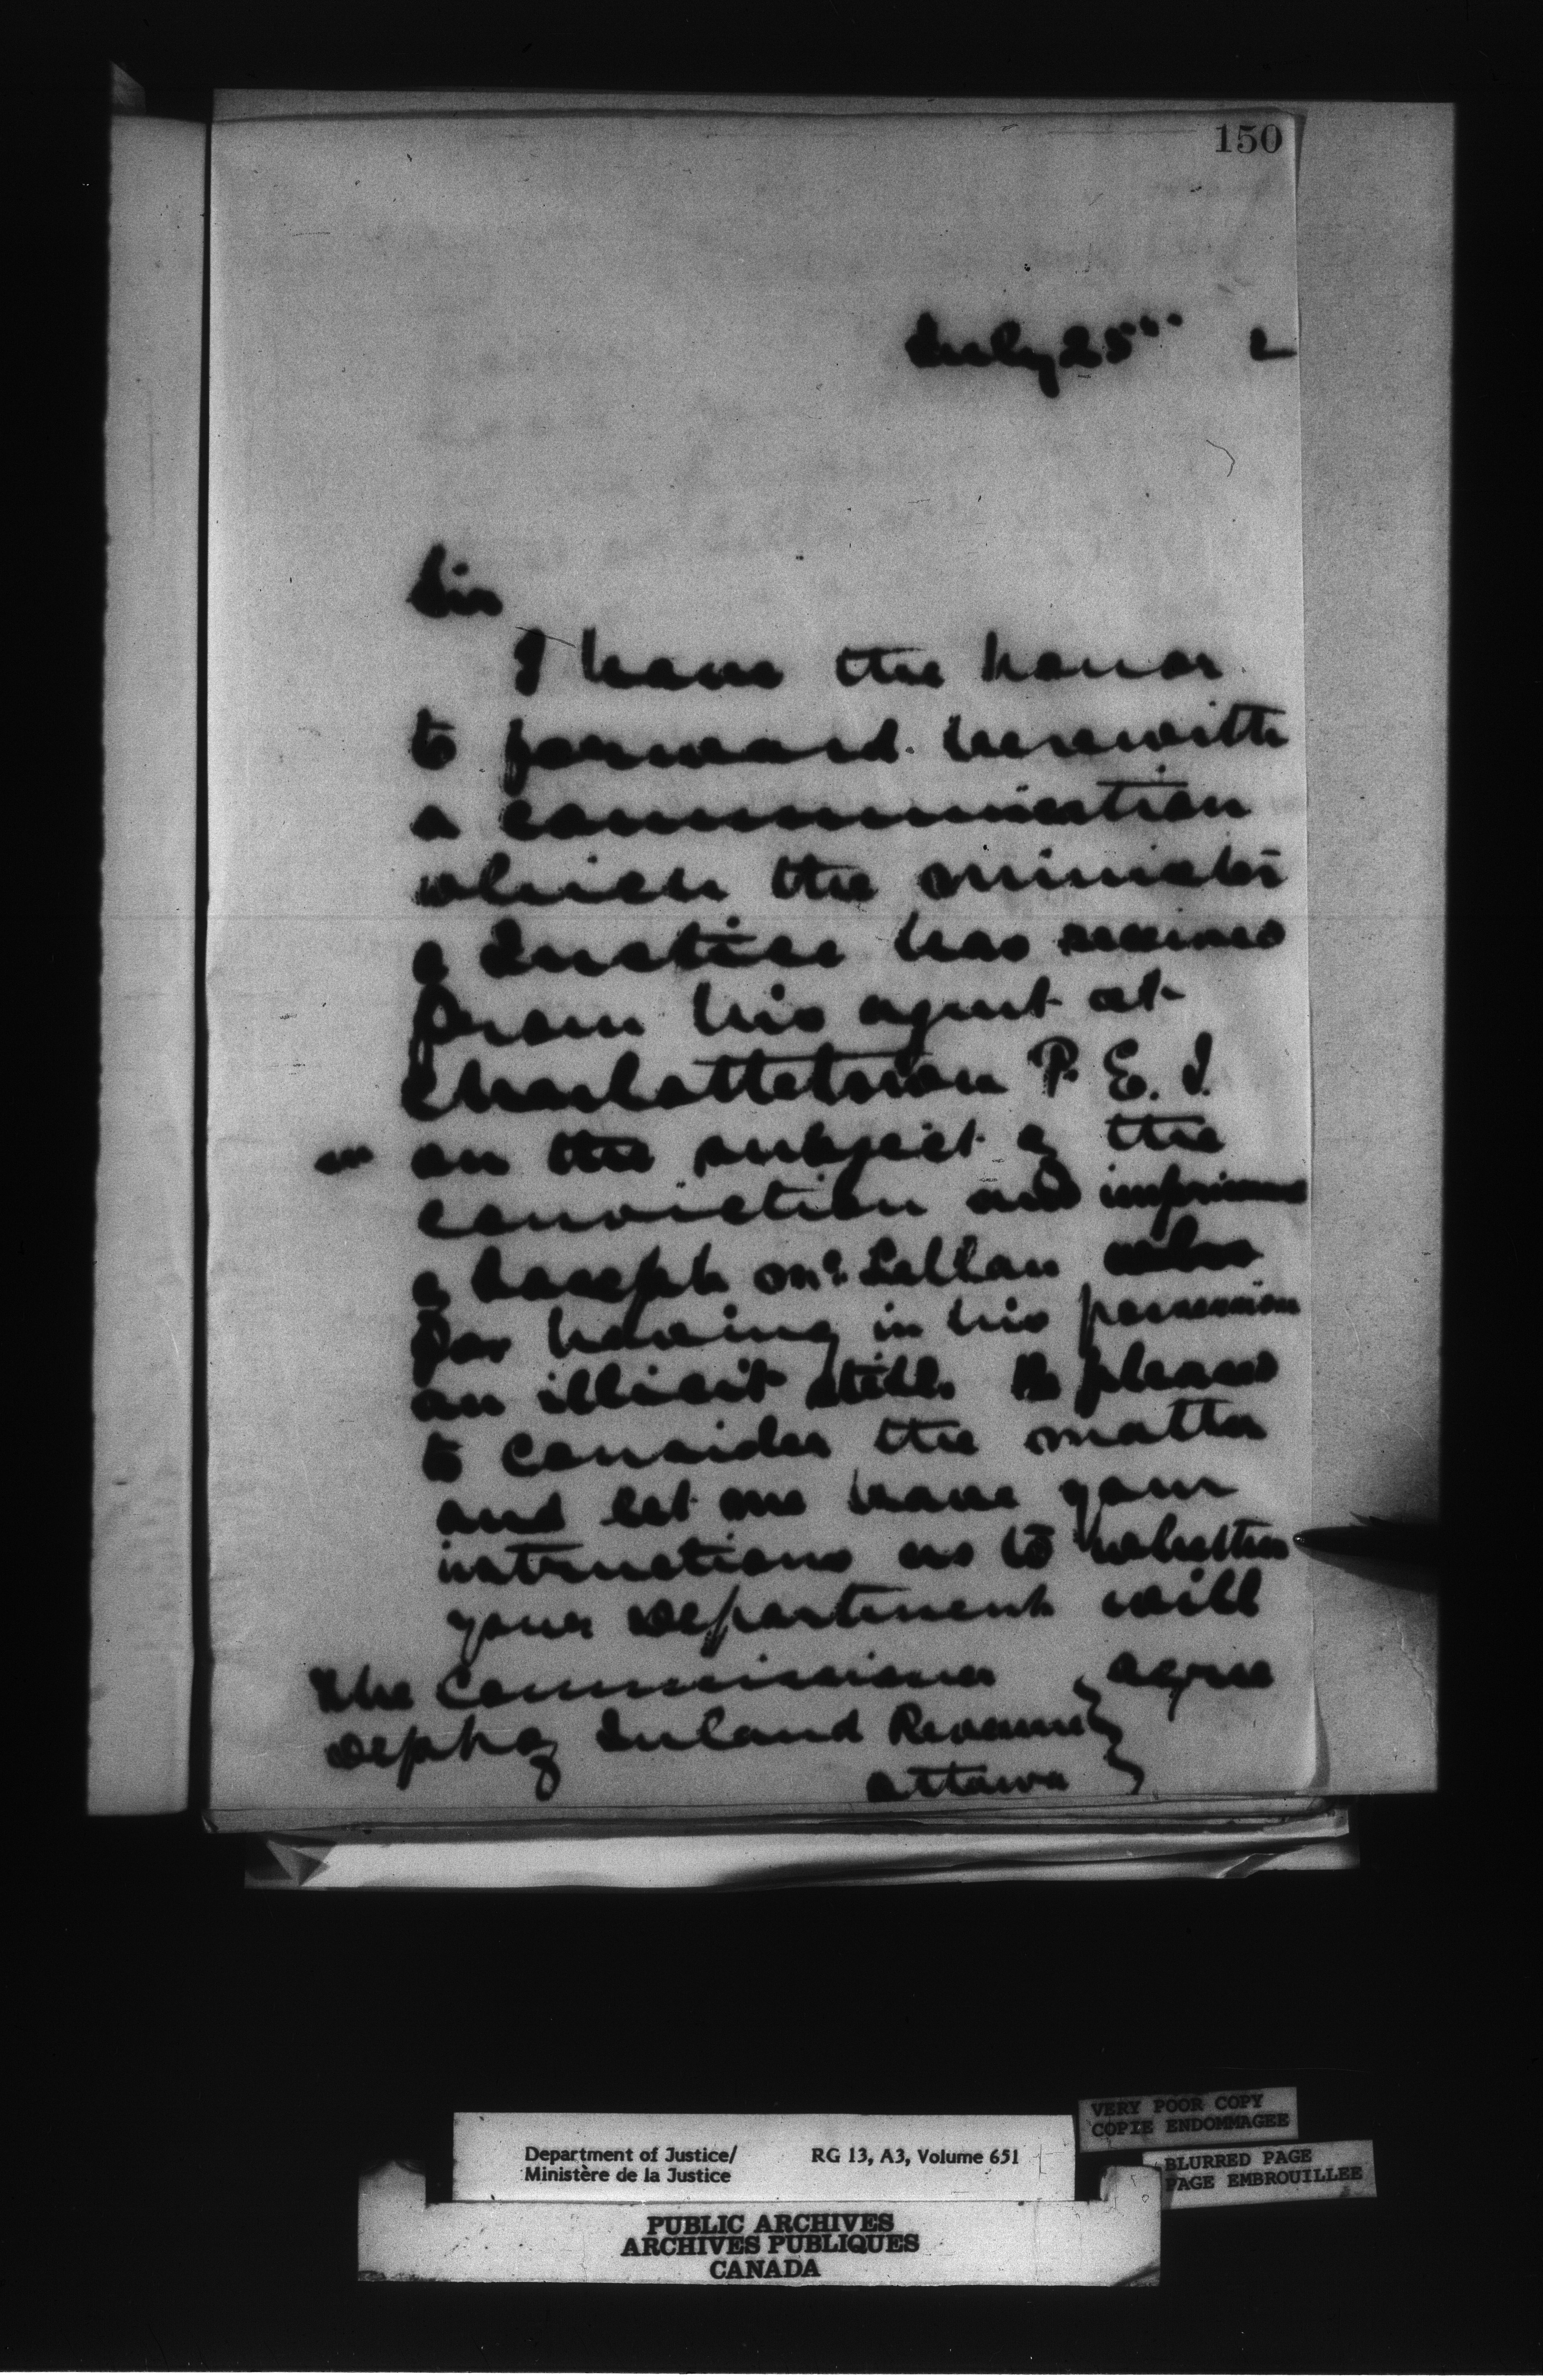 150
July 25th 2
Sir
I have the honor
to forward herewith
a communication
which the minister
of Justice has received
from his agent at
Charlottetown P. E. I.
on the subject of the
conviction and
of Joseph McLellan
for having in his possession
an illicit still. Be pleased
to consider the matter
and let me have your
instructions as to whether
your Department will
The Commissioner agree
Dept of Inland Revenue
Ottawa
Department of Justice/ RG 13, A3, Volume 651
Ministère de la Justice
VERY POOR COPY
COPIE ENDOMMAGEE
BLURRED PAGE
PAGE EMBROUILLEE
PUBLIC ARCHIVES
ARCHIVES PUBLIQUES
CANADA